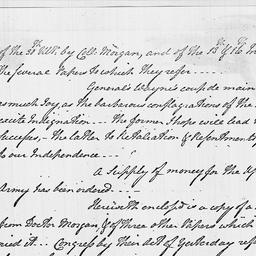 of the 31st Ulto. by Coll. Morgan, and of the 15th & 16 In
the several Papers to which they refer ----
General Wayne's coup de main
as much Joy, as the barbarous conflagrations of the
excite Indignation --- The former I hope will lead t
Successes, - the latter to Retaliation & Resentment, 
to our Independence --
A supply of money for the
Army has been ordered ----
Herewith enclos'd is a copy of a
from Doctor Morgan, & of three other Papers which
ried it -- Congress by their Act of Yesterday ref